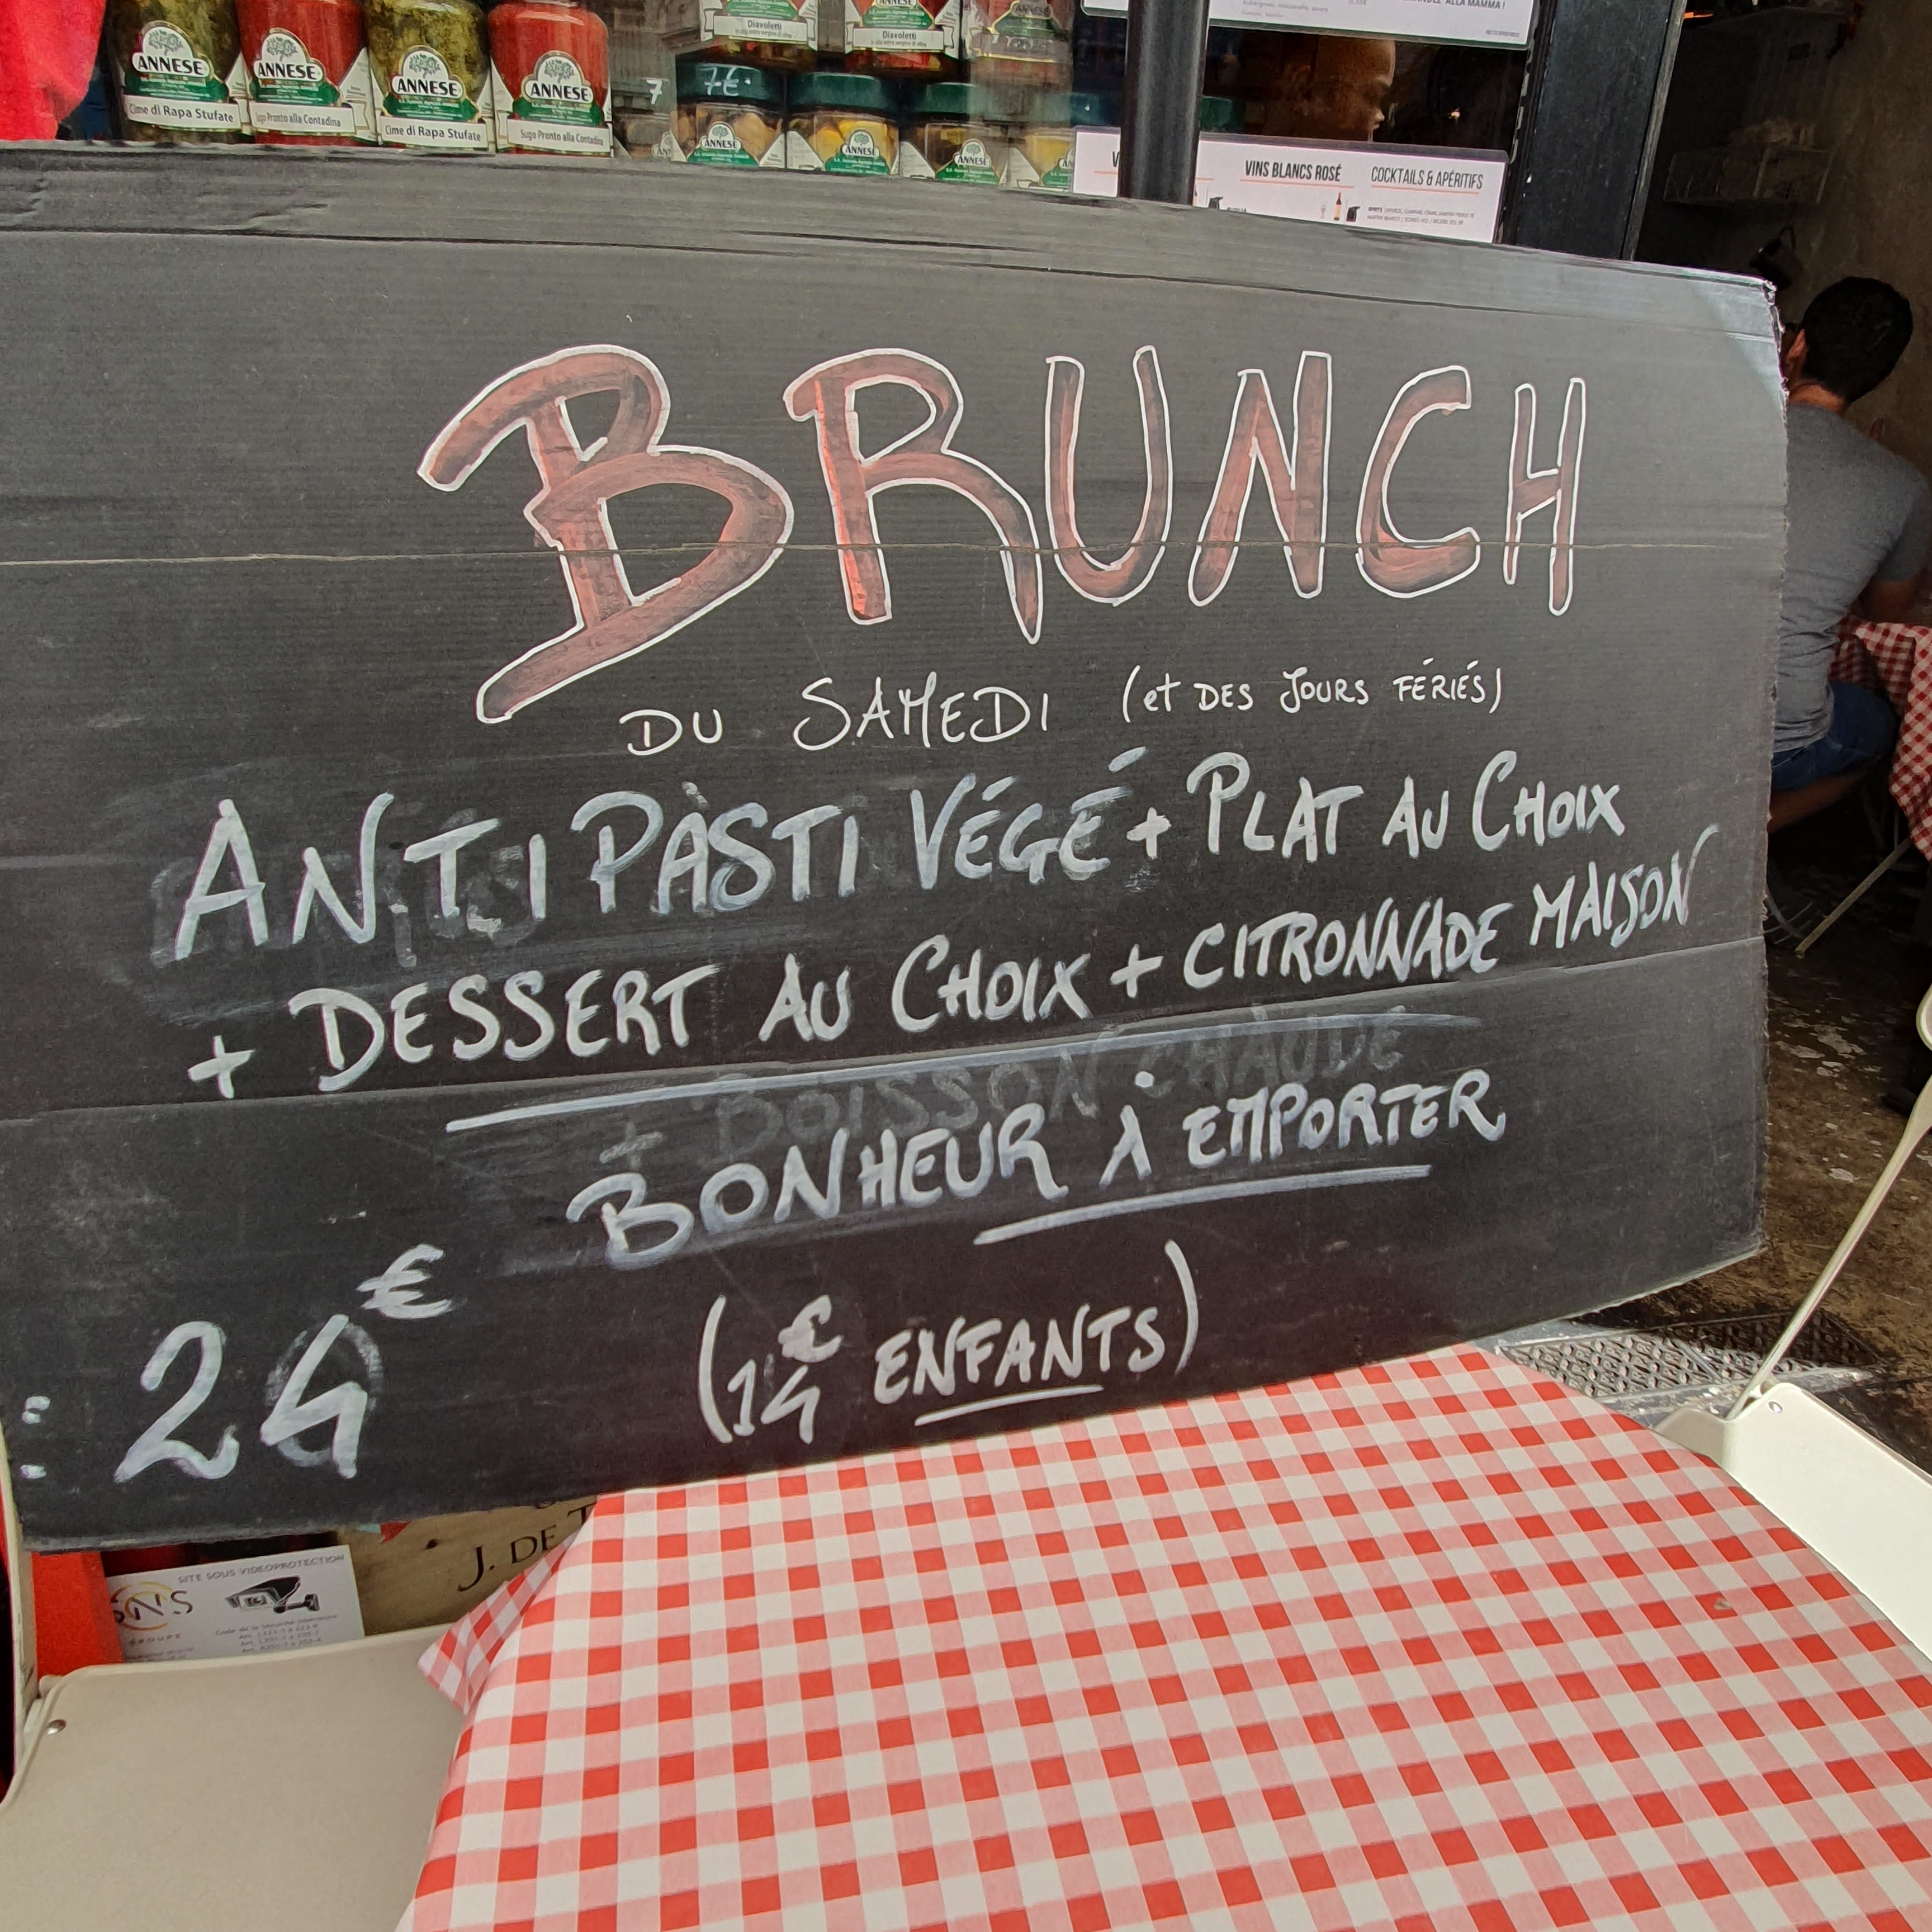 ANNESE
Cime di Rapa Stufate
ANNESE
Sugo Pronto alla Contadina
ANNESE
Cime di Rapa Stufate
ANNESE
Sugo Pronto alla Contadina
Diavoletti
Diavoletti
7
7€
ANNESE
ANNESE
ANNESE
ANNESE
VINS BLANCS ROSÉ
COCKTAILS & APÉRITIFS
BRUNCH
DU SAMEDI (et DES JOURS FÉRIÉS)
ANTIPASTI VÉGÉ + PLAT AU CHOIX
+ DESSERT AU CHOIX + CITRONNADE MAISON
+ BOISSON CHAUDE
BONHEUR À EMPORTER
= 24€
(14€ ENFANTS)
J. DE
SITE SOUS VIDEOPROTECTION
SNS
GROUPE